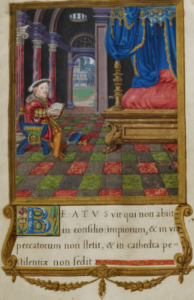 BEATVS vir qui non abiit
in consilio impiorum, & in via
peccatorum non stetit, & in cathedra
pestilentiæ non sedit